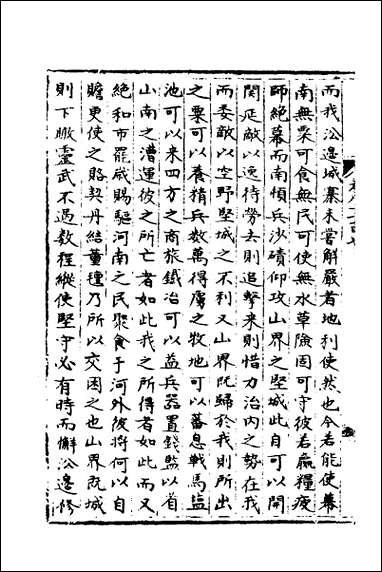 而我㳂邊城寨未嘗解嚴者地利使然也今若能使幕
南無粟可食無民可使無水草險固可守彼若羸糧疲
師絶幕而南頓兵沙磧仰攻山界之堅城此自可以開
関延敵以逸待勞去則追擊来則惜力治内之勢在我
而委敵以空野堅城之不利又山界既歸於我則所出
之粟可以養精兵數萬得虜之牧地可以蕃息戰馬塩
池可以来四方之商旅鐵冶可以益兵器置錢監以省
山南之漕運彼之所亡者如此我之所得者如此而又
絶和市罷歳賜驅河南之民聚食于河外彼将何以自
贍更使之賂契丹結董氊乃所以交困之也山界既城
則下瞰靈武不過數程縱使堅守必有時而懈㳂邊修